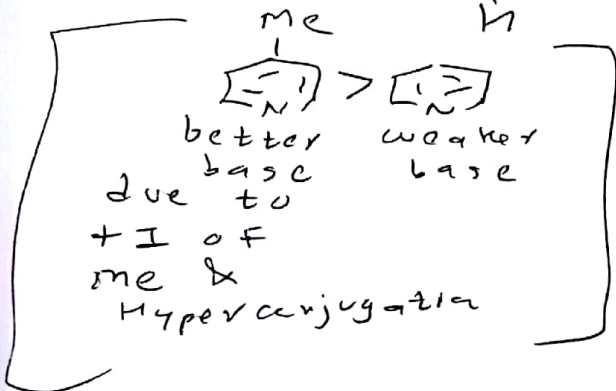 Me H
N > N
better weaker
base base
due to
+ I of
me &
Hyperconjugatia